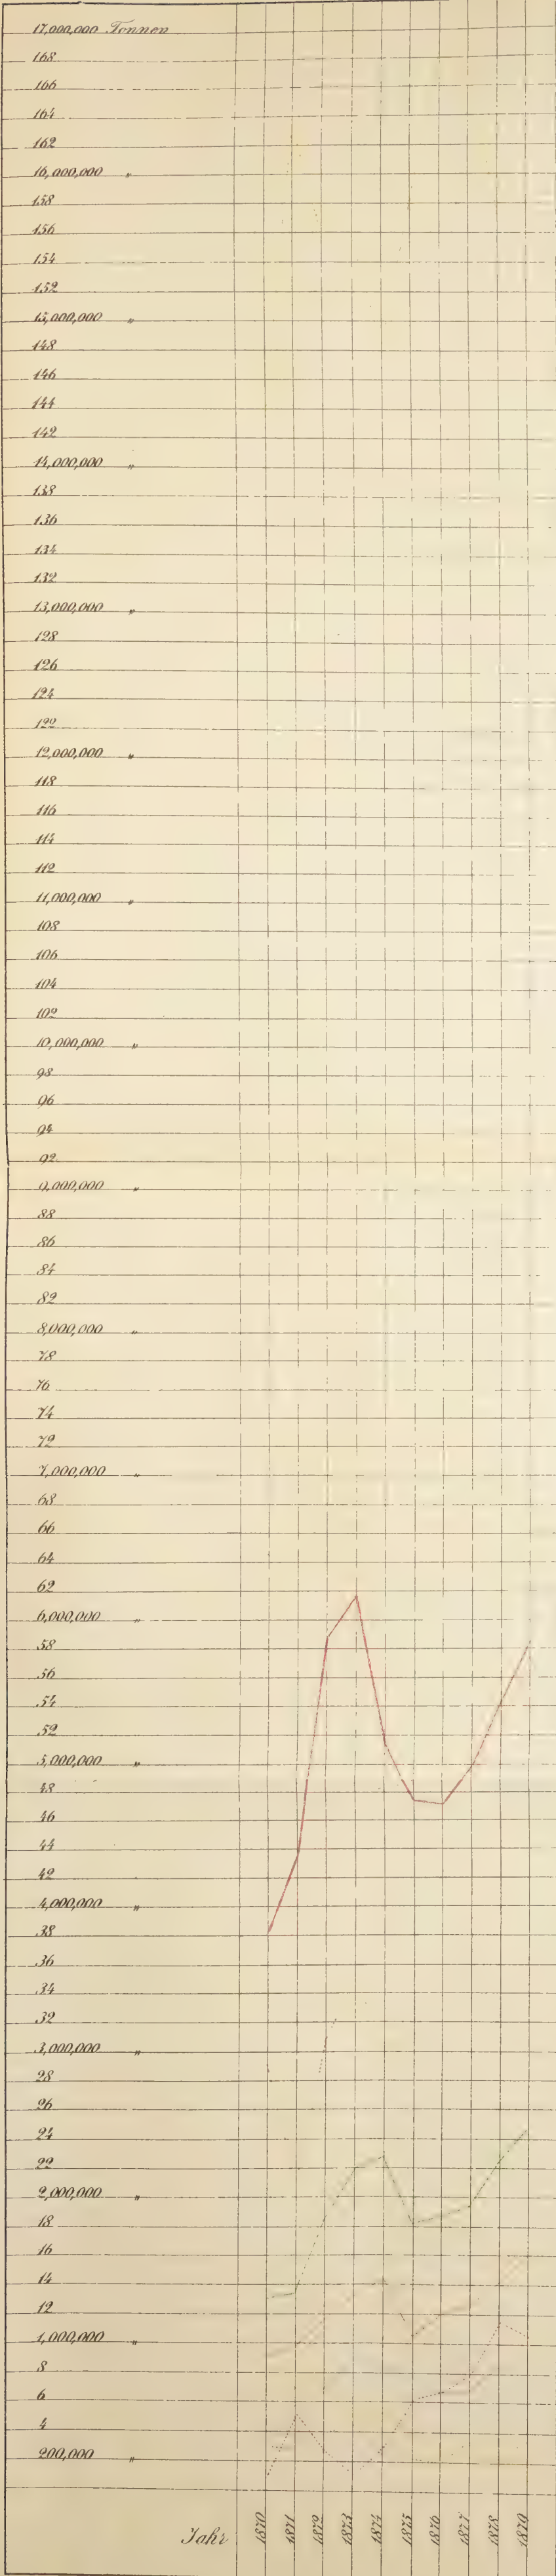 17,000,000 Tonnen
168
166
164
162
16,000,000 "
158
156
154
152
15,000,000 "
148
146
144
142
14,000,000 "
138
136
134
132
13,000,000 "
128
126
124
122
12,000,000 "
118
116
114
112
11,000,000 "
108
106
104
102
10,000,000 "
98
96
94
92
9,000,000 "
88
86
84
82
8,000,000 "
78
76
74
72
7,000,000 "
68
66
64
62
6,000,000 "
58
56
54
52
5,000,000 "
48
46
44
42
4,000,000 "
38
36
34
32
3,000,000 "
28
26
24
22
2,000,000 "
18
16
14
12
1,000,000 "
8
6
4
200,000 "
Jahr 1870 1871 1872 1873 1874 1875 1876 1877 1878 1879